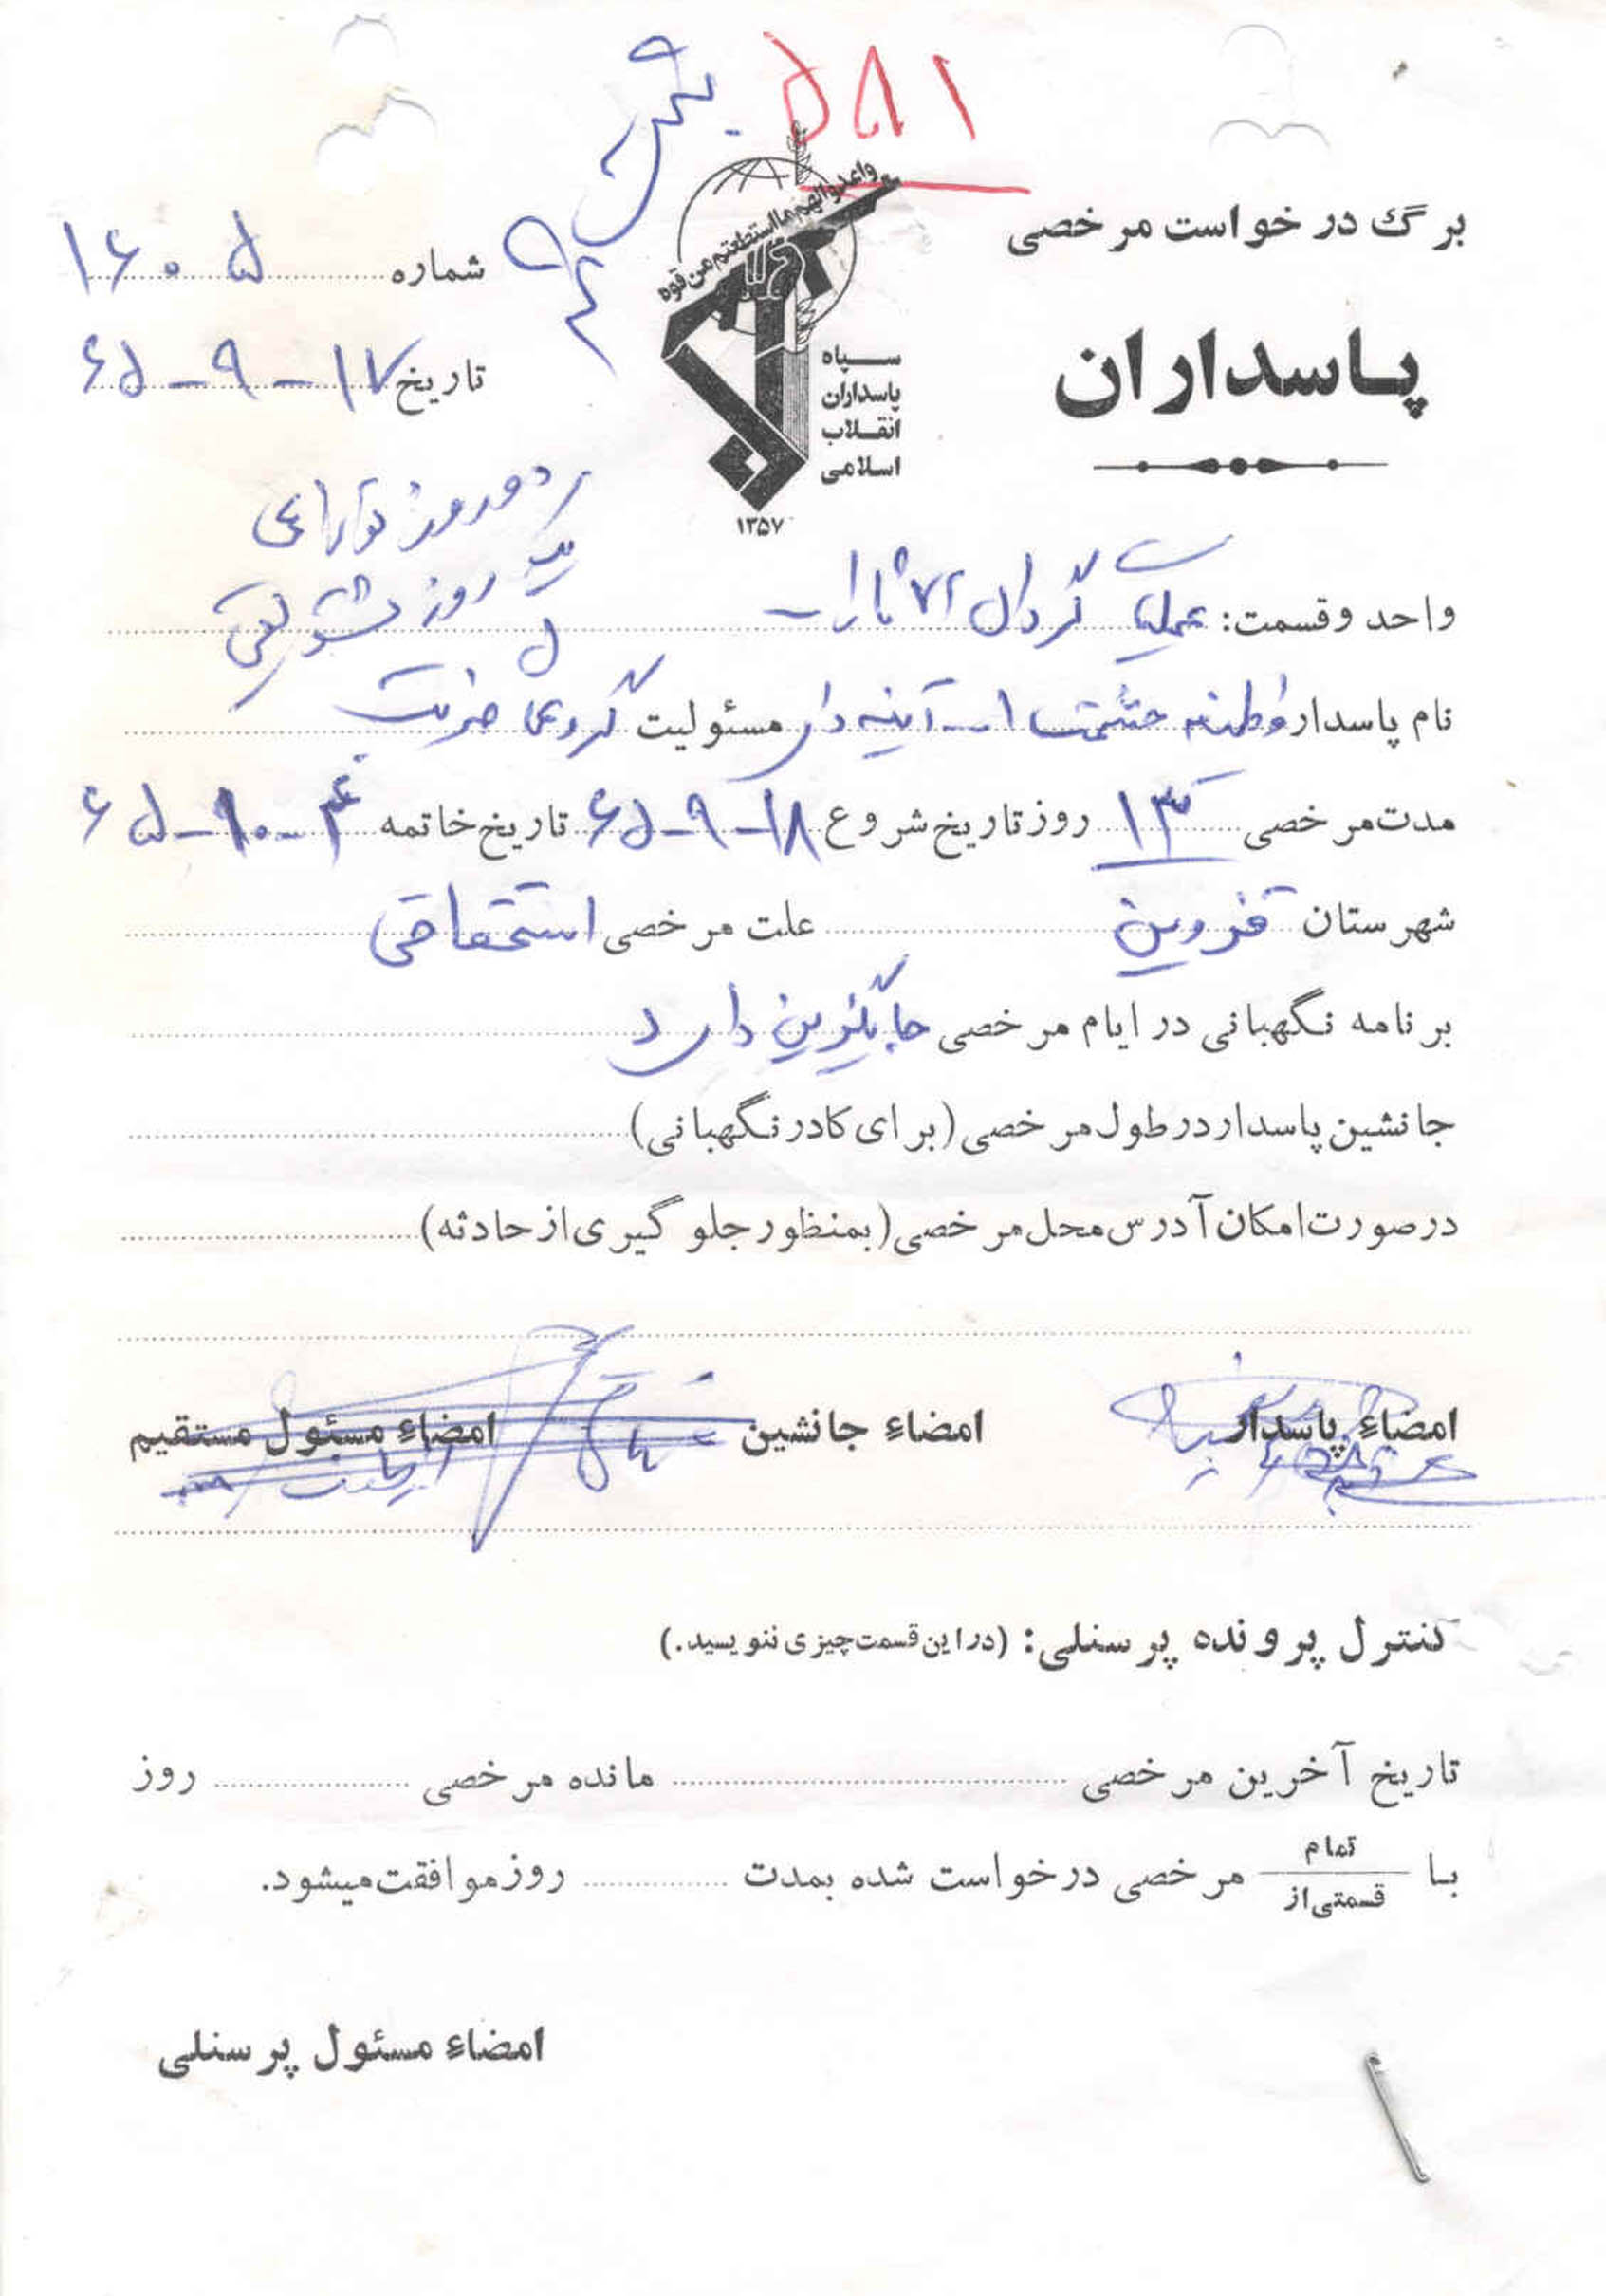 ۵۸۱
برگ درخواست مرخصی
پاسداران
واعدوا لهم ما استطعتم من قوه
سپاه
پاسداران
انقلاب
اسلامی
۱۳۵۷
شماره ۱۶۰۵
تاریخ ۱۷-۹-۶۵
دو روز توراهی
یک روز تشویقی
واحد و قسمت: عملیات گردان
نام پاسدار حشمت ا... آینه دار مسئولیت گروهان ضربت
مدت مرخصی ۱۳ روز تاریخ شروع ۱۸-۹-۶۵ تاریخ خاتمه ۴-۱۰-۶۵
شهرستان قزوین علت مرخصی استحقاقی
برنامه نگهبانی در ایام مرخصی جایگزین دارد
جانشین پاسدار در طول مرخصی (برای کادر نگهبانی)
در صورت امکان آدرس محل مرخصی (بمنظور جلوگیری از حادثه)
امضاء پاسدار امضاء جانشین امضاء مسئول مستقیم
کنترل پرونده پرسنلی: (در این قسمت چیزی ننویسید.)
تاریخ آخرین مرخصی مانده مرخصی روز
با تمام قسمتی از مرخصی درخواست شده بمدت روز موافقت میشود.
امضاء مسئول پرسنلی